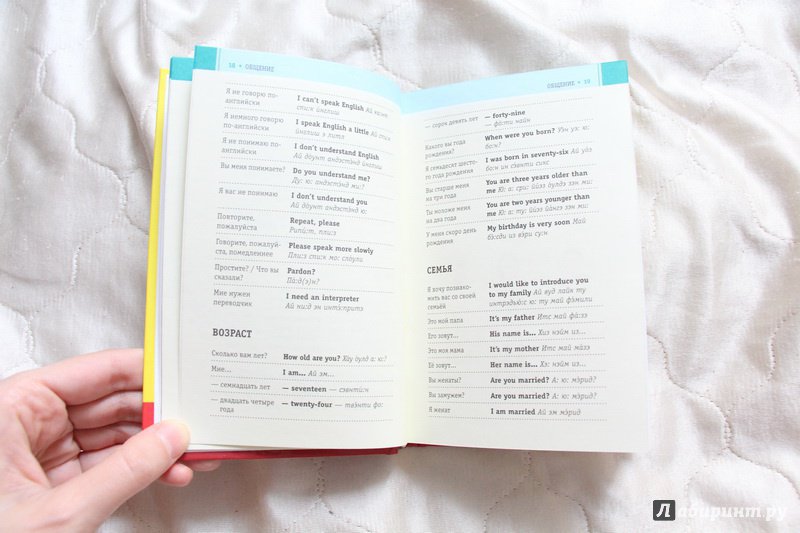 18 • ОБЩЕНИЕ
Я не говорю по- I can't speak English Ай ка:нт
английски спи:к йнглиш
Я немного говорю I speak English a little Ай спи:к
по-английски йнглиш э литл
Я не понимаю по- I don't understand English
английски Ай дóунт андэстэ́нд йнглиш
Вы меня понимаете? Do you understand me?
Ду: ю: андэстэ́нд ми:?
Я вас не понимаю I don't understand you
Ай дóунт андэстэ́нд ю:
Повторите, Repeat, please
пожалуйста Рипи́:т, пли:з
Говорите, пожалуй- Please speak more slowly
ста, помедленнее Пли:з спи:к мо: слóули
Простите? / Что вы Pardon?
сказали? Па́:д(э)н?
Мне нужен I need an interpreter
переводчик Ай ни:д эн интё:притэ
ВОЗРАСТ
Сколько вам лет? How old are you? Ха́у óулд а: ю:?
Мне... I am... Ай эм...
— семнадцать лет — seventeen — сэвнти́:н
— двадцать четыре — twenty-four — твэ́нти фо:
года
ОБЩЕНИЕ • 19
— сорок девять лет — forty-nine
— фó:ти найн
Какого вы года When were you born? Уэн уэ: ю:
рождения? бо:н?
Я семьдесят шесто- I was born in seventy-six Ай уóз
го года рождения бо:н ин сэ́внти сикс
Вы старше меня You are three years older than
на три года me Ю: а: сри: йи́эз óулдэ зэн ми:
Ты моложе меня You are two years younger than
на два года me Ю: а: ту: йи́эз йа́нгэ зэн ми:
У меня скоро день My birthday is very soon Май
рождения бё:сди из вэ́ри су:н
СЕМЬЯ
Я хочу познако- I would like to introduce you
мить вас со своей to my family Ай вуд лайк ту
семьёй интрэдью́:с ю: ту май фэ́мили
Это мой папа It's my father Итс май фа́:зэ
Его зовут... His name is... Хиз нэйм из...
Это моя мама It's my mother Итс май ма́зэ
Её зовут... Her name is... Хэ: нэйм из...
Вы женаты? Are you married? А: ю: мэ́рид?
Вы замужем? Are you married? А: ю: мэ́рид?
Я женат I am married Ай эм мэ́рид
Лабиринт.ру